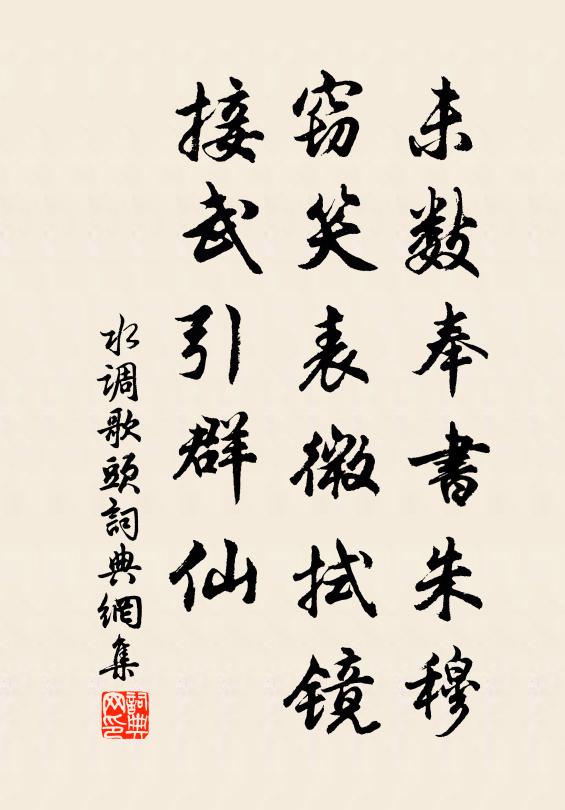 未数奉書朱穆
窃笑表微拭镜
接武引群仙
水调歌頭詞典網集
詞典网印